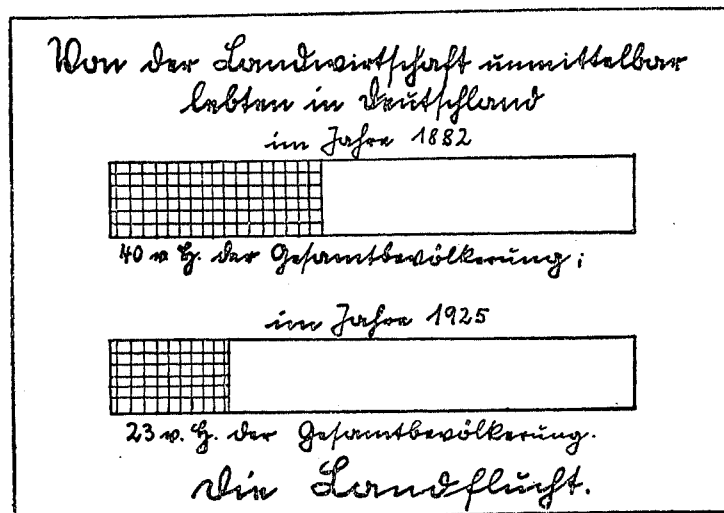 Von der Landwirtschaft unmittelbar
lebten in Deutschland
im Jahre 1882
40 v. H. der Gesamtbevölkerung;
im Jahre 1925
23 v. H. der Gesamtbevölkerung.
Die Landflucht.